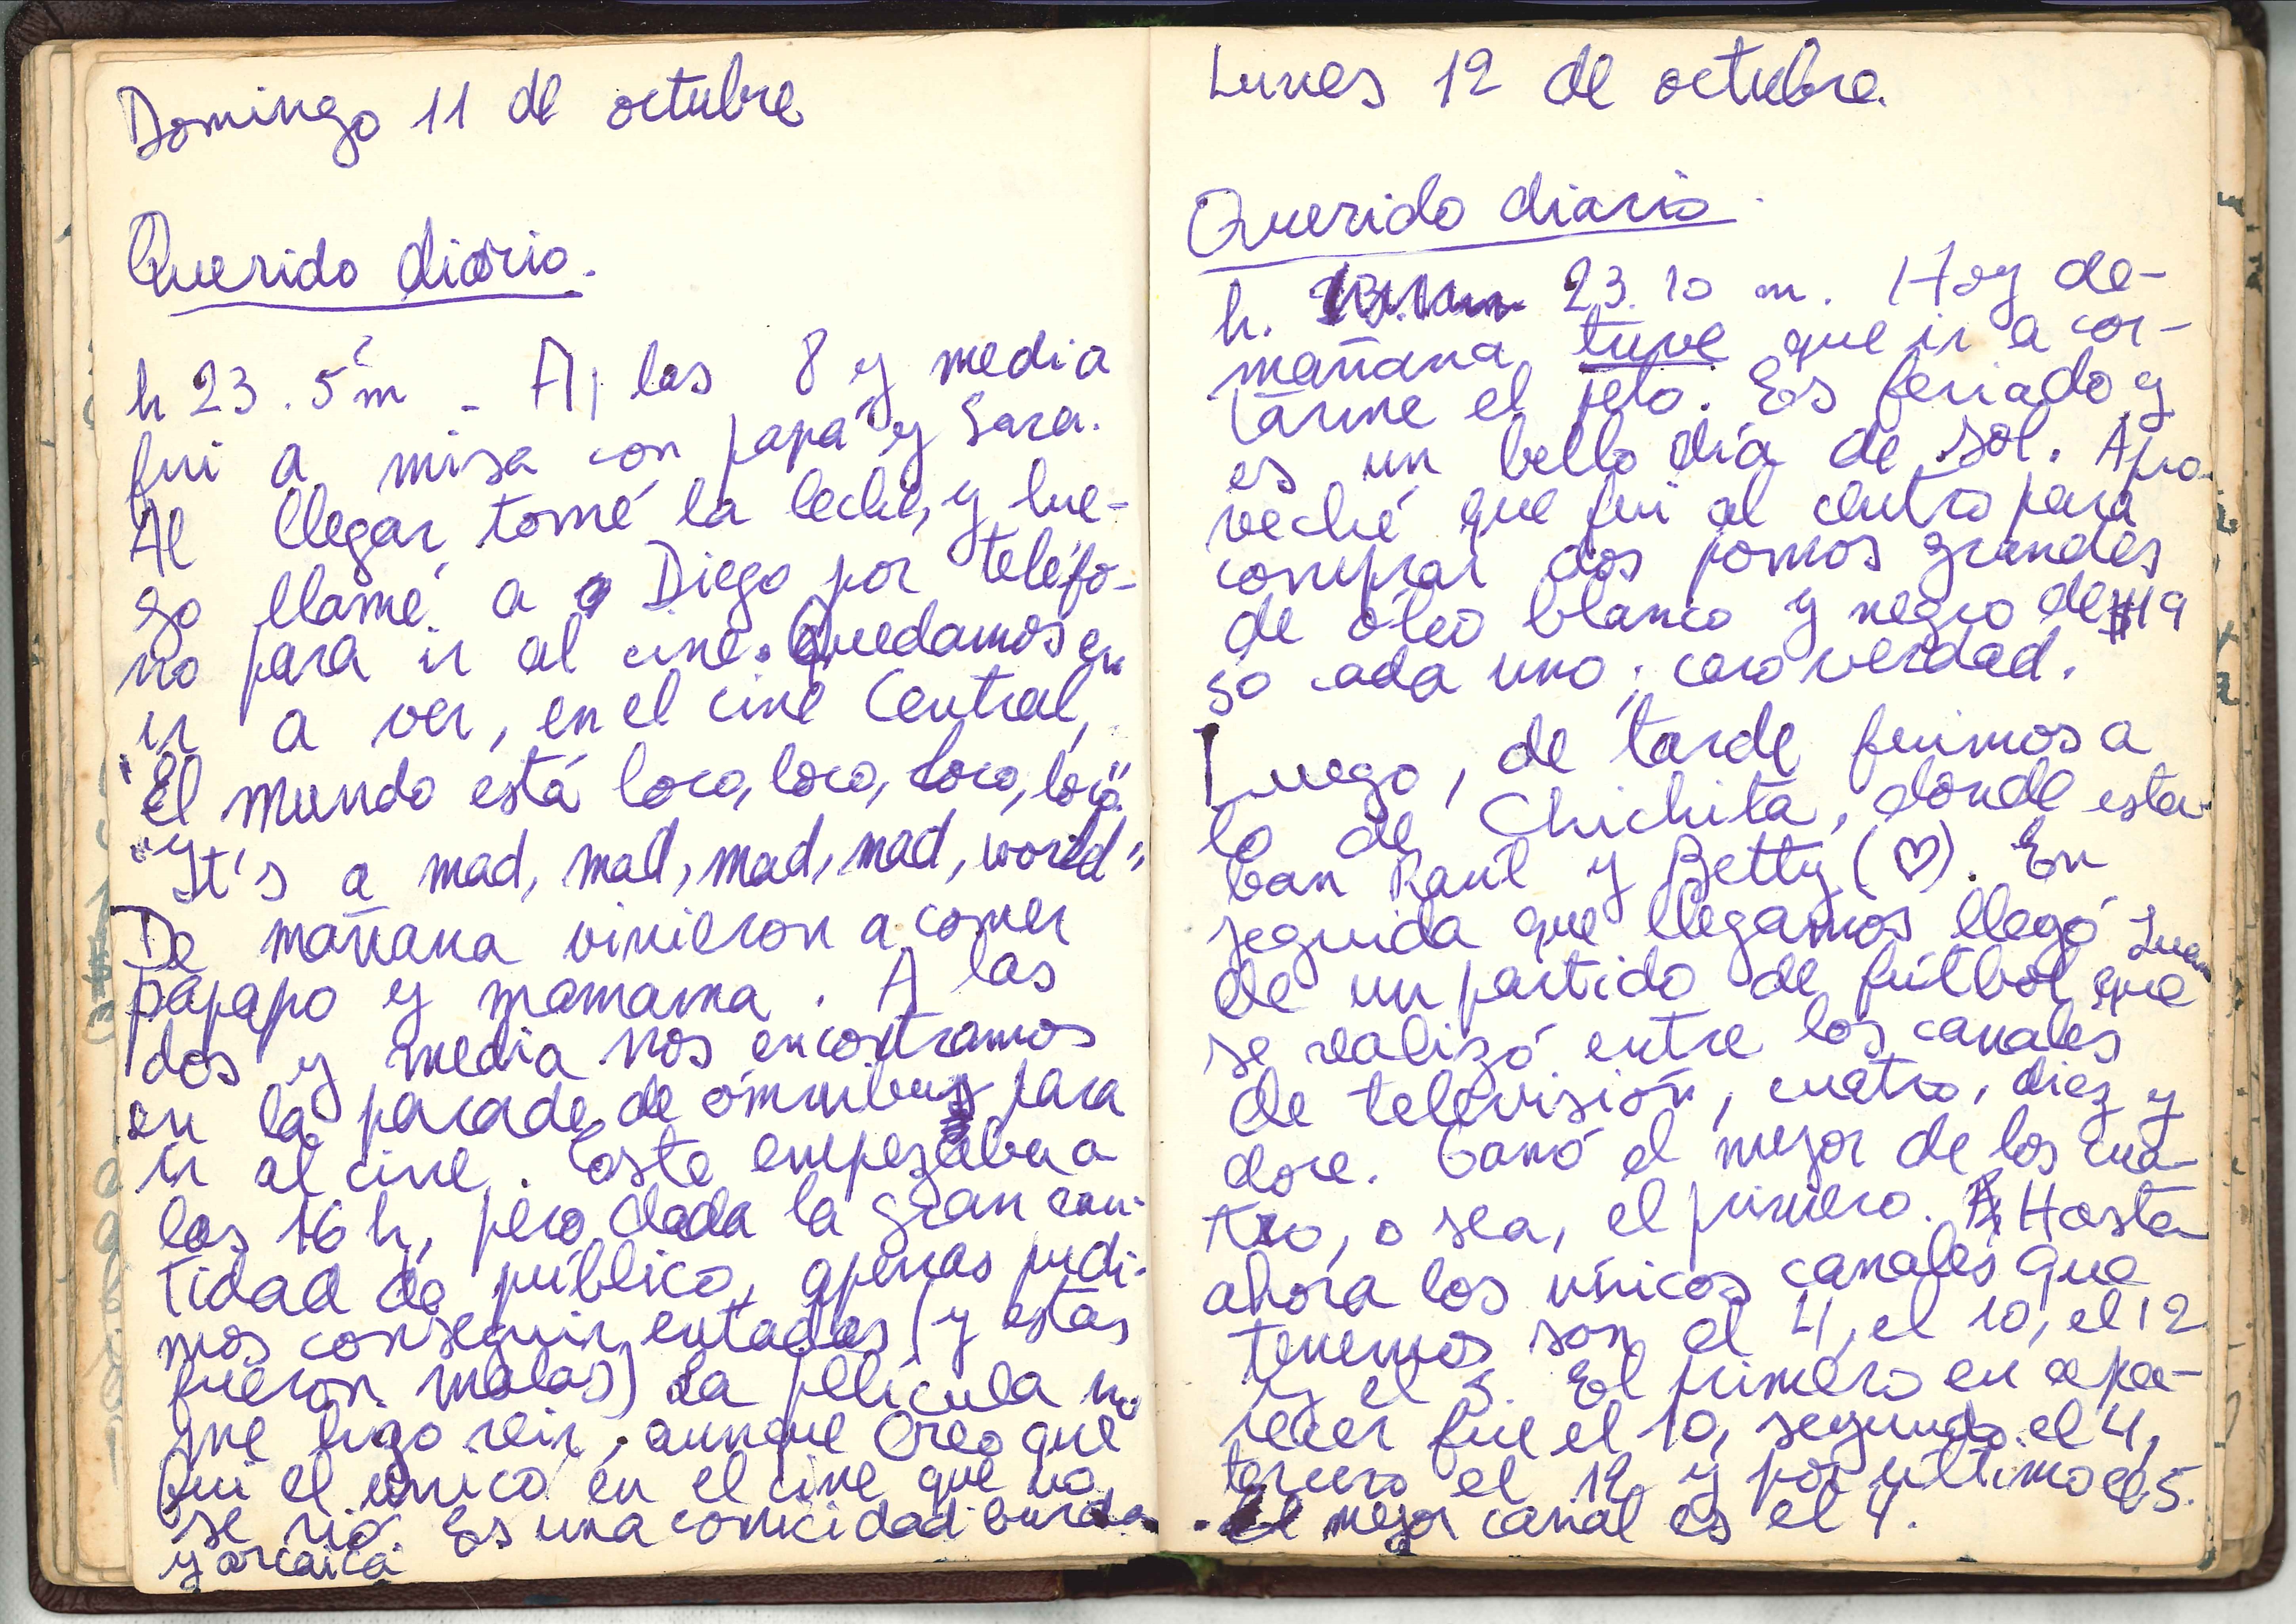 Domingo 11 de octubre
Querido diario.
h 23. 5 m - A las 8 y media
fui a misa con papá y Sara.
Al llegar, tomé la leche, y lue-
go llamé a Diego por teléfo-
no para ir al cine. Quedamos en
ir a ver, en el cine Central,
"El mundo está loco, loco, loco, loco".
"It's a mad, mad, mad, mad, world"
De mañana vinieron a comer
papapo y mamama. A las
dos y media nos encontramos
en la parada de ómnibus para
ir al cine. Este empezaba a
las 16 h, pero dada la gran can-
tidad de público, apenas pudi-
mos conseguir entadas (y estas
fueron malas) La película no
me hizo reir, aunque Creo que
fui el único en el cine que no
se rió. Es una comicidad burda
y arcaica.
Lunes 12 de octubre.
Querido diario
h. 23.10 m. Hoy de-
mañana tuve que ir a cor-
tarme el pelo. Es feriado y
es un bello día de sol. Apro-
veché que fui al centro para
comprar dos pomos grandes
de óleo blanco y negro de $19
50 cada uno; caro verdad.
Luego, de tarde fuimos a
lo de Chichita, donde esta-
ban Raúl y Betty (♡). En
seguida que llegamos llegó Juan
de un partido de fútbol que
se realizó entre los canales
de televisión, cuatro, diez y
doce. Ganó el mejor de los cua-
tro, o sea, el primero. Hasta
ahora los únicos canales que
tenemos son el 4, el 10, el 12
y el 5. El primero en apa-
recer fue el 10, segundo el 4,
tercero el 12 y por último el 5.
El mejor canal es el 4.